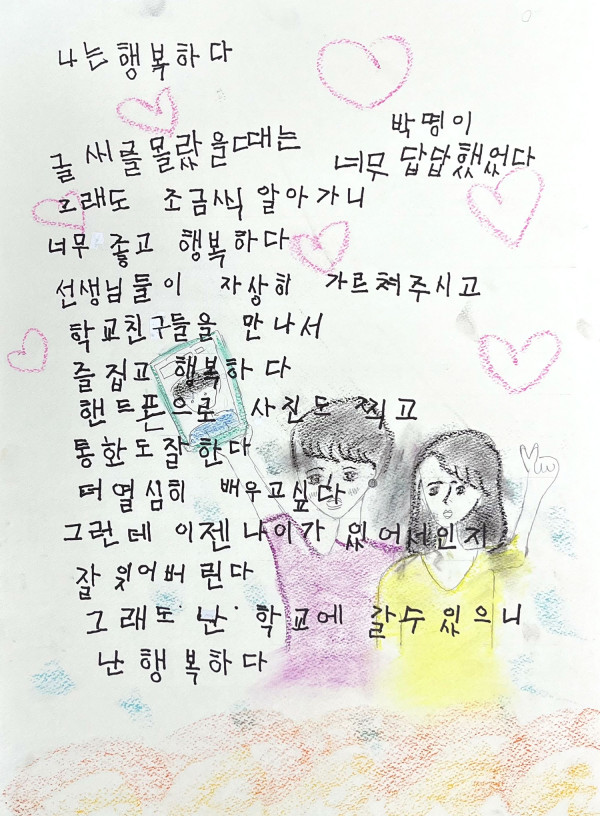 나는 행복하다
박명이
글 씨를 몰랐을때는 너무 답답했었다
그래도 조금씩 알아가니
너무 좋고 행복하다
선생님들이 자상히 가르쳐주시고
학교친구들을 만나서
즐집고 행복하다
핸드폰으로 사진도 찍고
통화도잘한다
더열심히 배우고싶다
그런데 이젠나이가 있어서인지
잘 잊어버린다
그래도 난 학교에 갈수있으니
난행복하다